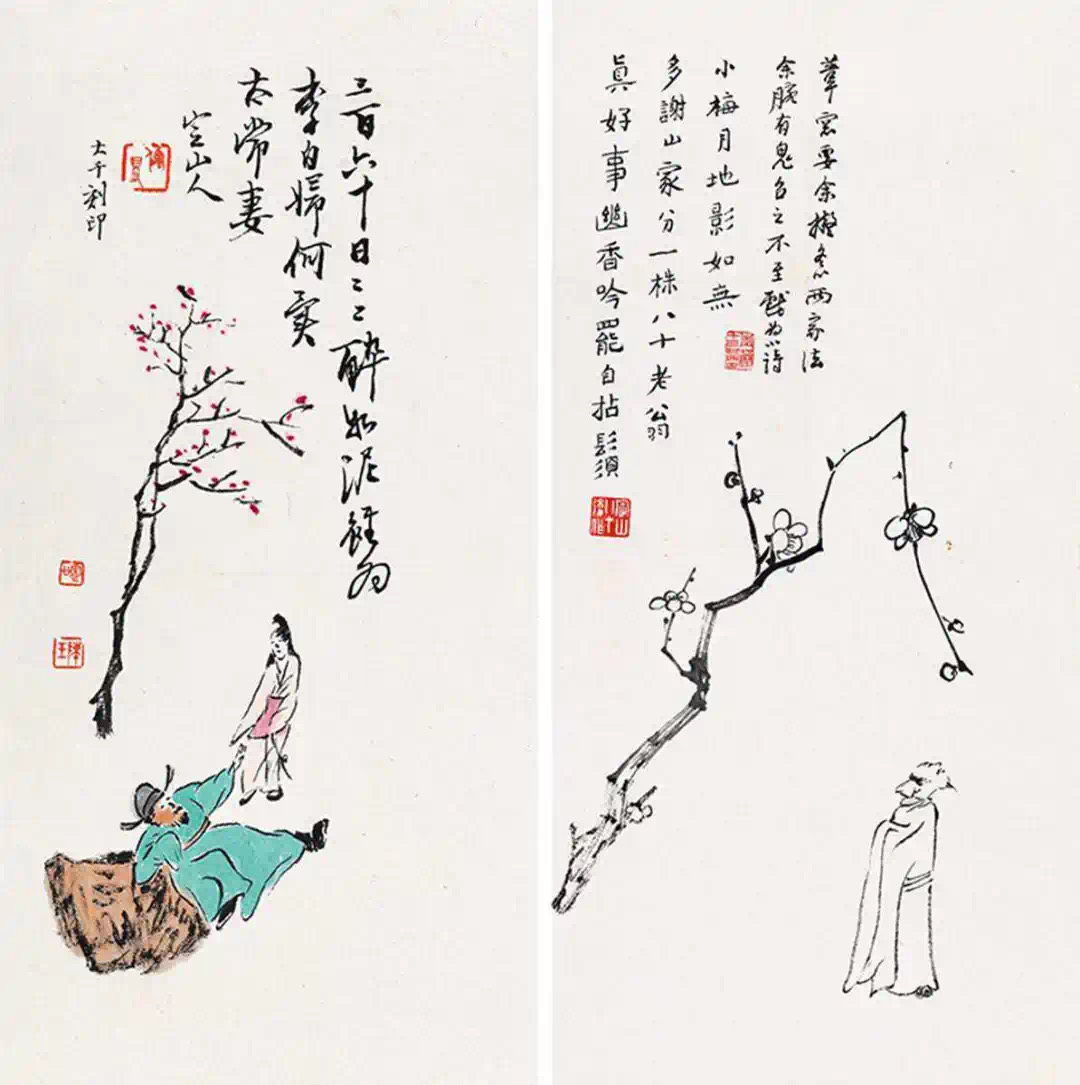 葦窓要余擬冬心兩家法
余腕有鬼召之不至戲為小詩
小梅月地影如無
多謝山家分一株八十老翁
眞好事幽香吟罷自拈髭須
三百六十日〻〻醉如泥雖為
李白婦何異
太常妻
定山人
大千刻印